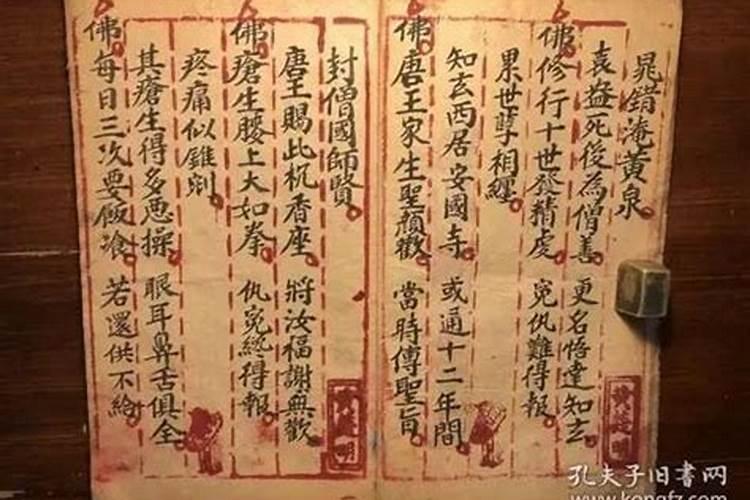 晁錯淹黄泉
袁益死後為僧善 更名悟達知玄
佛修行十世發精虔 寃仇難得報
累世孽相纏
知玄西居安國寺 或通十二年間
佛唐王家生聖顏歡 當時傳聖旨
封僧國師賢
唐王賜此杌香座 將汝福謝無歡
佛瘡生腰上大如拳 仇寃終得報
疼痛似錐剜
其瘡生得多悪操 眼耳鼻舌俱全
佛每日三次要飯飡 若還供不給
孔夫子旧书网